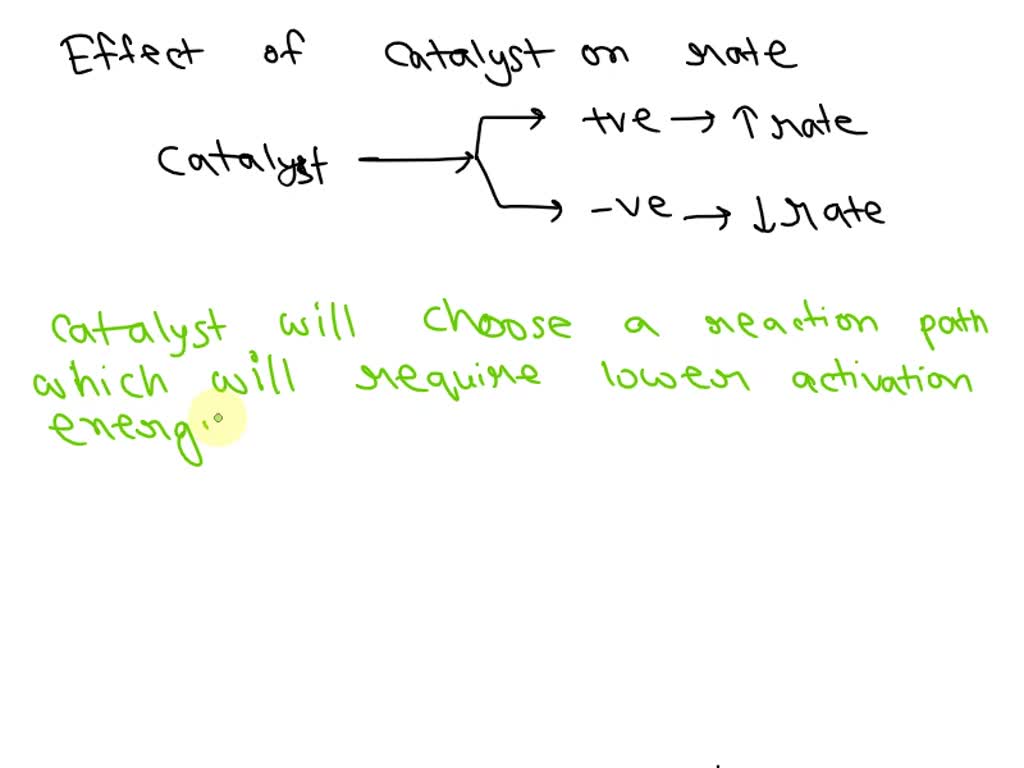 Effect of Catalyst on rate
+ve → ↑ rate
Catalyst →
-ve → ↓ rate
Catalyst will choose a reaction path
which will require lower activation
energ